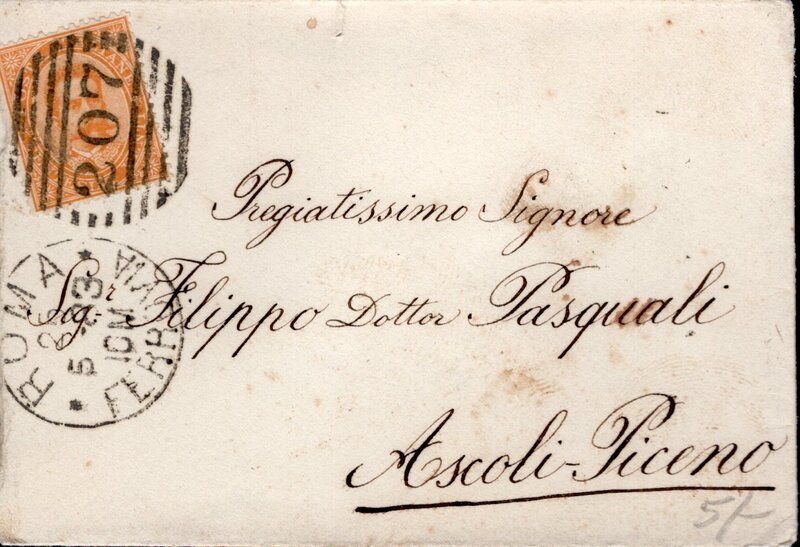 207
Pregiatissimo Signore
Sig.r Filippo Dottor Pasquali
Ascoli-Piceno
ROMA
FERROVIA
5-83
10M
5/-